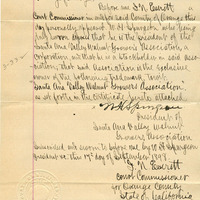 Before me J. N. Everett a
Court Commissioner in and for said County of Orange this
day personally appeared W. H. Spurgeon who being
sworn says that he is the President of the
Santa Ana Valley Walnut Growers Association, a
corporation, that he is a stockholder in said asso-
ciation, that said Association is the exclusive
owner of the following trademark, to wit:
Santa Ana Valley Walnut Growers Association
as set forth in the certificate hereto attached
W H Spurgeon
President of
Santa Ana Valley Walnut
Growers Association
Subscribed and sworn to before me by W H Spurgeon
President on this 17th day of September 1893
J. N. Everett
Court Commissioner
for Orange County
State of California